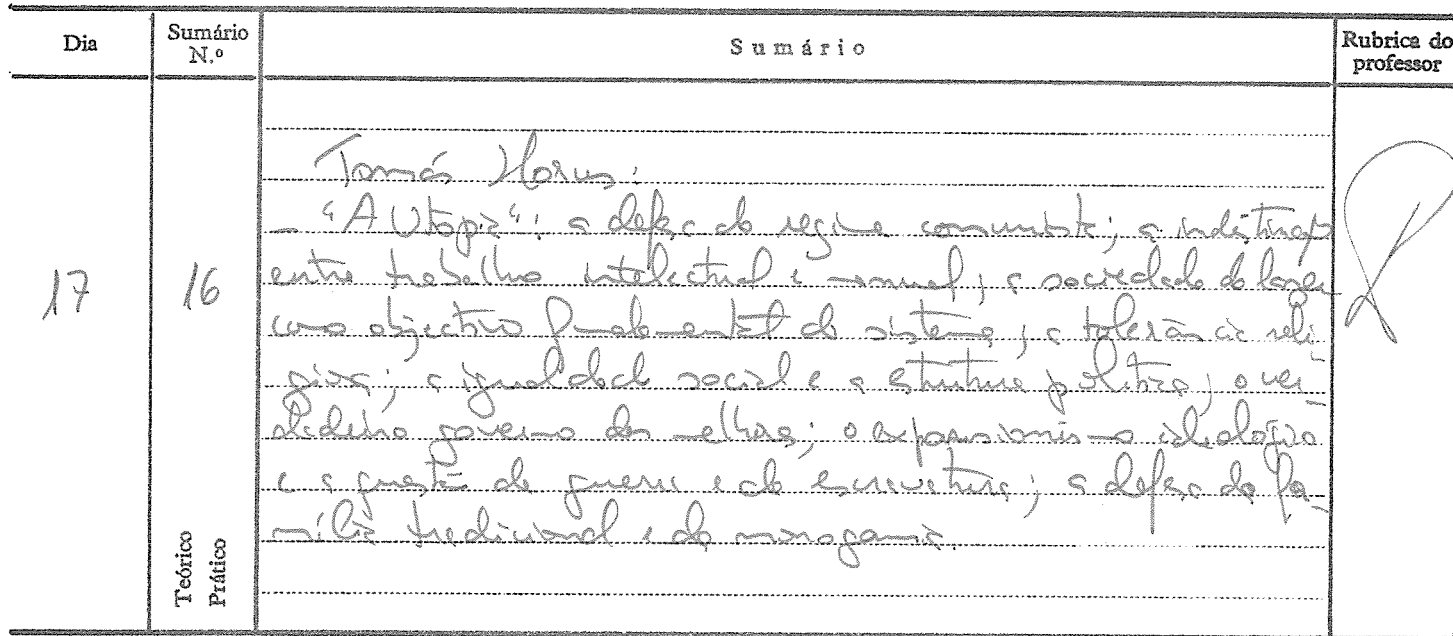 Dia
Sumário
N.º
Sumário
Rubrica do
professor
17
16
Teórico
Prático
Tomás Morus:
- "A Utopia": a defesa do regime comunista; a indistinção
entre trabalho intelectual e manual; a sociedade do lazer
como objectivo fundamental do sistema; a tolerância reli-
giosa; a igualdade social e a estrutura política; o ver-
dadeiro governo dos melhores; o expansionismo ideológico
e a questão da guerra e da escravatura; a defesa da fa-
mília tradicional e da monogamia.